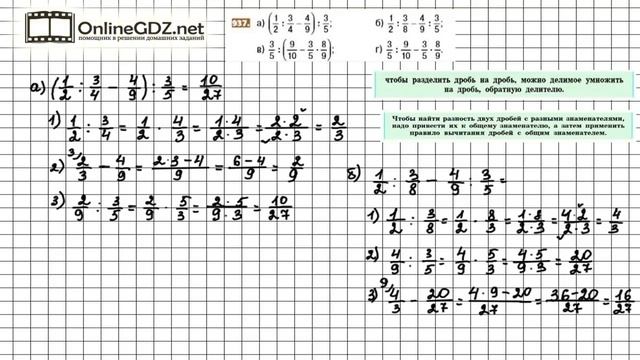 OnlineGDZ.net
помощник в решении домашних заданий
937. а) (1/2 : 3/4 − 4/9) : 3/5; б) 1/2 : 3/8 − 4/9 : 3/5;
в) 3/5 : (9/10 − 3/5 · 8/9); г) 3/5 : 9/10 − 3/5 · 8/9.
чтобы разделить дробь на дробь, можно делимое умножить
на дробь, обратную делителю.
Чтобы найти разность двух дробей с разными знаменателями,
надо привести их к общему знаменателю, а затем применить
правило вычитания дробей с общим знаменателем.
а) (1/2 : 3/4 − 4/9) : 3/5 = 10/27
1) 1/2 : 3/4 = 1/2 · 4/3 = 1·4/2·3 = 2·2/2·3 = 2/3
2) ³⁾2/3 − 4/9 = 2·3−4/9 = 6−4/9 = 2/9
3) 2/9 : 3/5 = 2/9 · 5/3 = 2·5/9·3 = 10/27
б) 1/2 : 3/8 − 4/9 : 3/5 =
1) 1/2 : 3/8 = 1/2 · 8/3 = 1·8/2·3 = 4·2/2·3 = 4/3
2) 4/9 : 3/5 = 4/9 · 5/3 = 4·5/9·3 = 20/27
3) ⁹⁾4/3 − 20/27 = 4·9−20/27 = 36−20/27 = 16/27